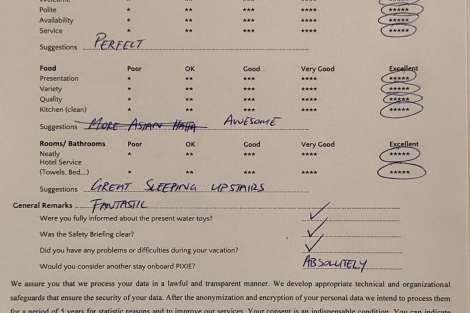 Polite * ** *** **** *****
Availability * ** *** **** *****
Service * ** *** **** *****
Suggestions PERFECT
Food Poor OK Good Very Good Excellent
Presentation * ** *** **** *****
Variety * ** *** **** *****
Quality * ** *** **** *****
Kitchen (clean) * ** *** **** *****
Suggestions MORE ASIAN AWESOME
Rooms/ Bathrooms Poor OK Good Very Good Excellent
Neatly * ** *** **** *****
Hotel Service
(Towels, Bed...) * ** *** **** *****
Suggestions GREAT SLEEPING UPSTAIRS
General Remarks FANTASTIC
Were you fully informed about the present water toys?
Was the Safety Briefing clear?
Did you have any problems or difficulties during your vacation?
Would you consider another stay onboard PIXIE? ABSOLUTELY
We assure you that we process your data in a lawful and transparent manner. We develop appropriate technical and organizational
safeguards that ensure the security of your data. After the anonymization and encryption of your personal data we intend to process them
for a period of 5 years for statistic reasons and to improve our services. Your consent is an indispensable condition. You can indicate